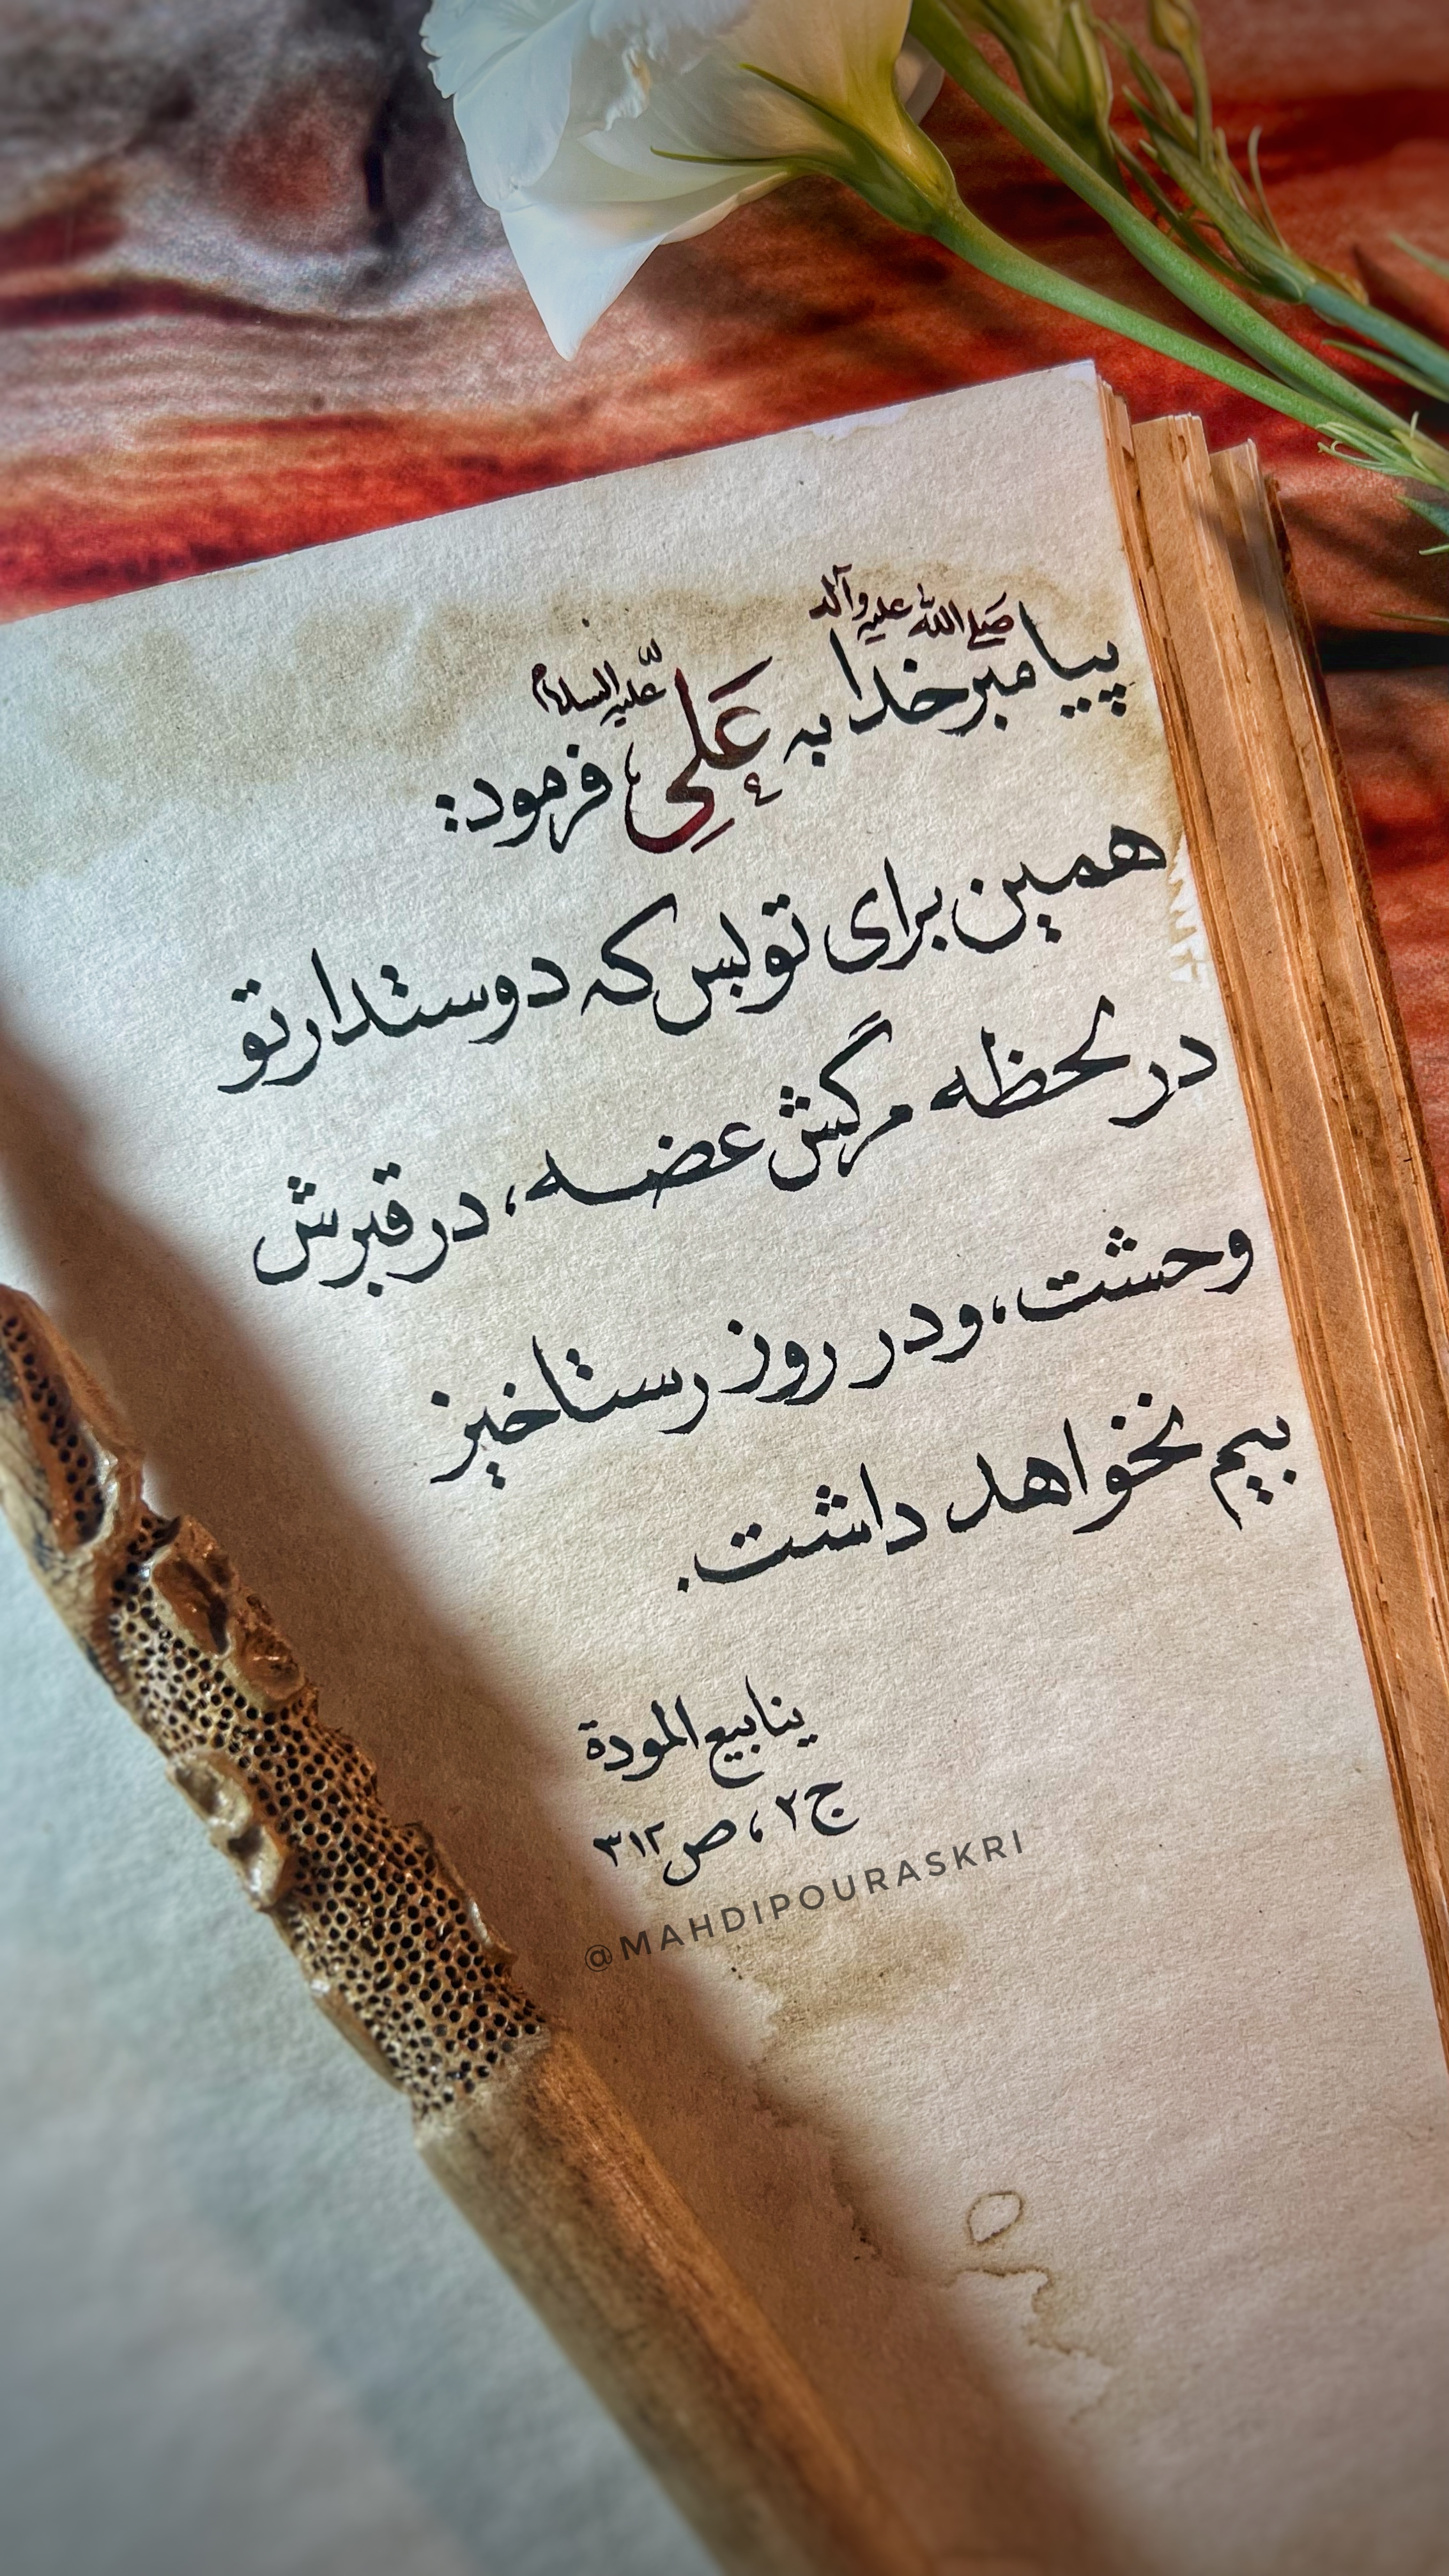 پیامبر خدا صلی الله علیه وآله به علی علیه السلام فرمود:
همین برای تو بس که دوستدار تو
در لحظه مرگش عضه، در قبرش
وحشت، و در روز رستاخیز
بیم نخواهد داشت.
ینابیع المودة
ج۲، ص۳۱۲
@MAHDIPOURASKRI